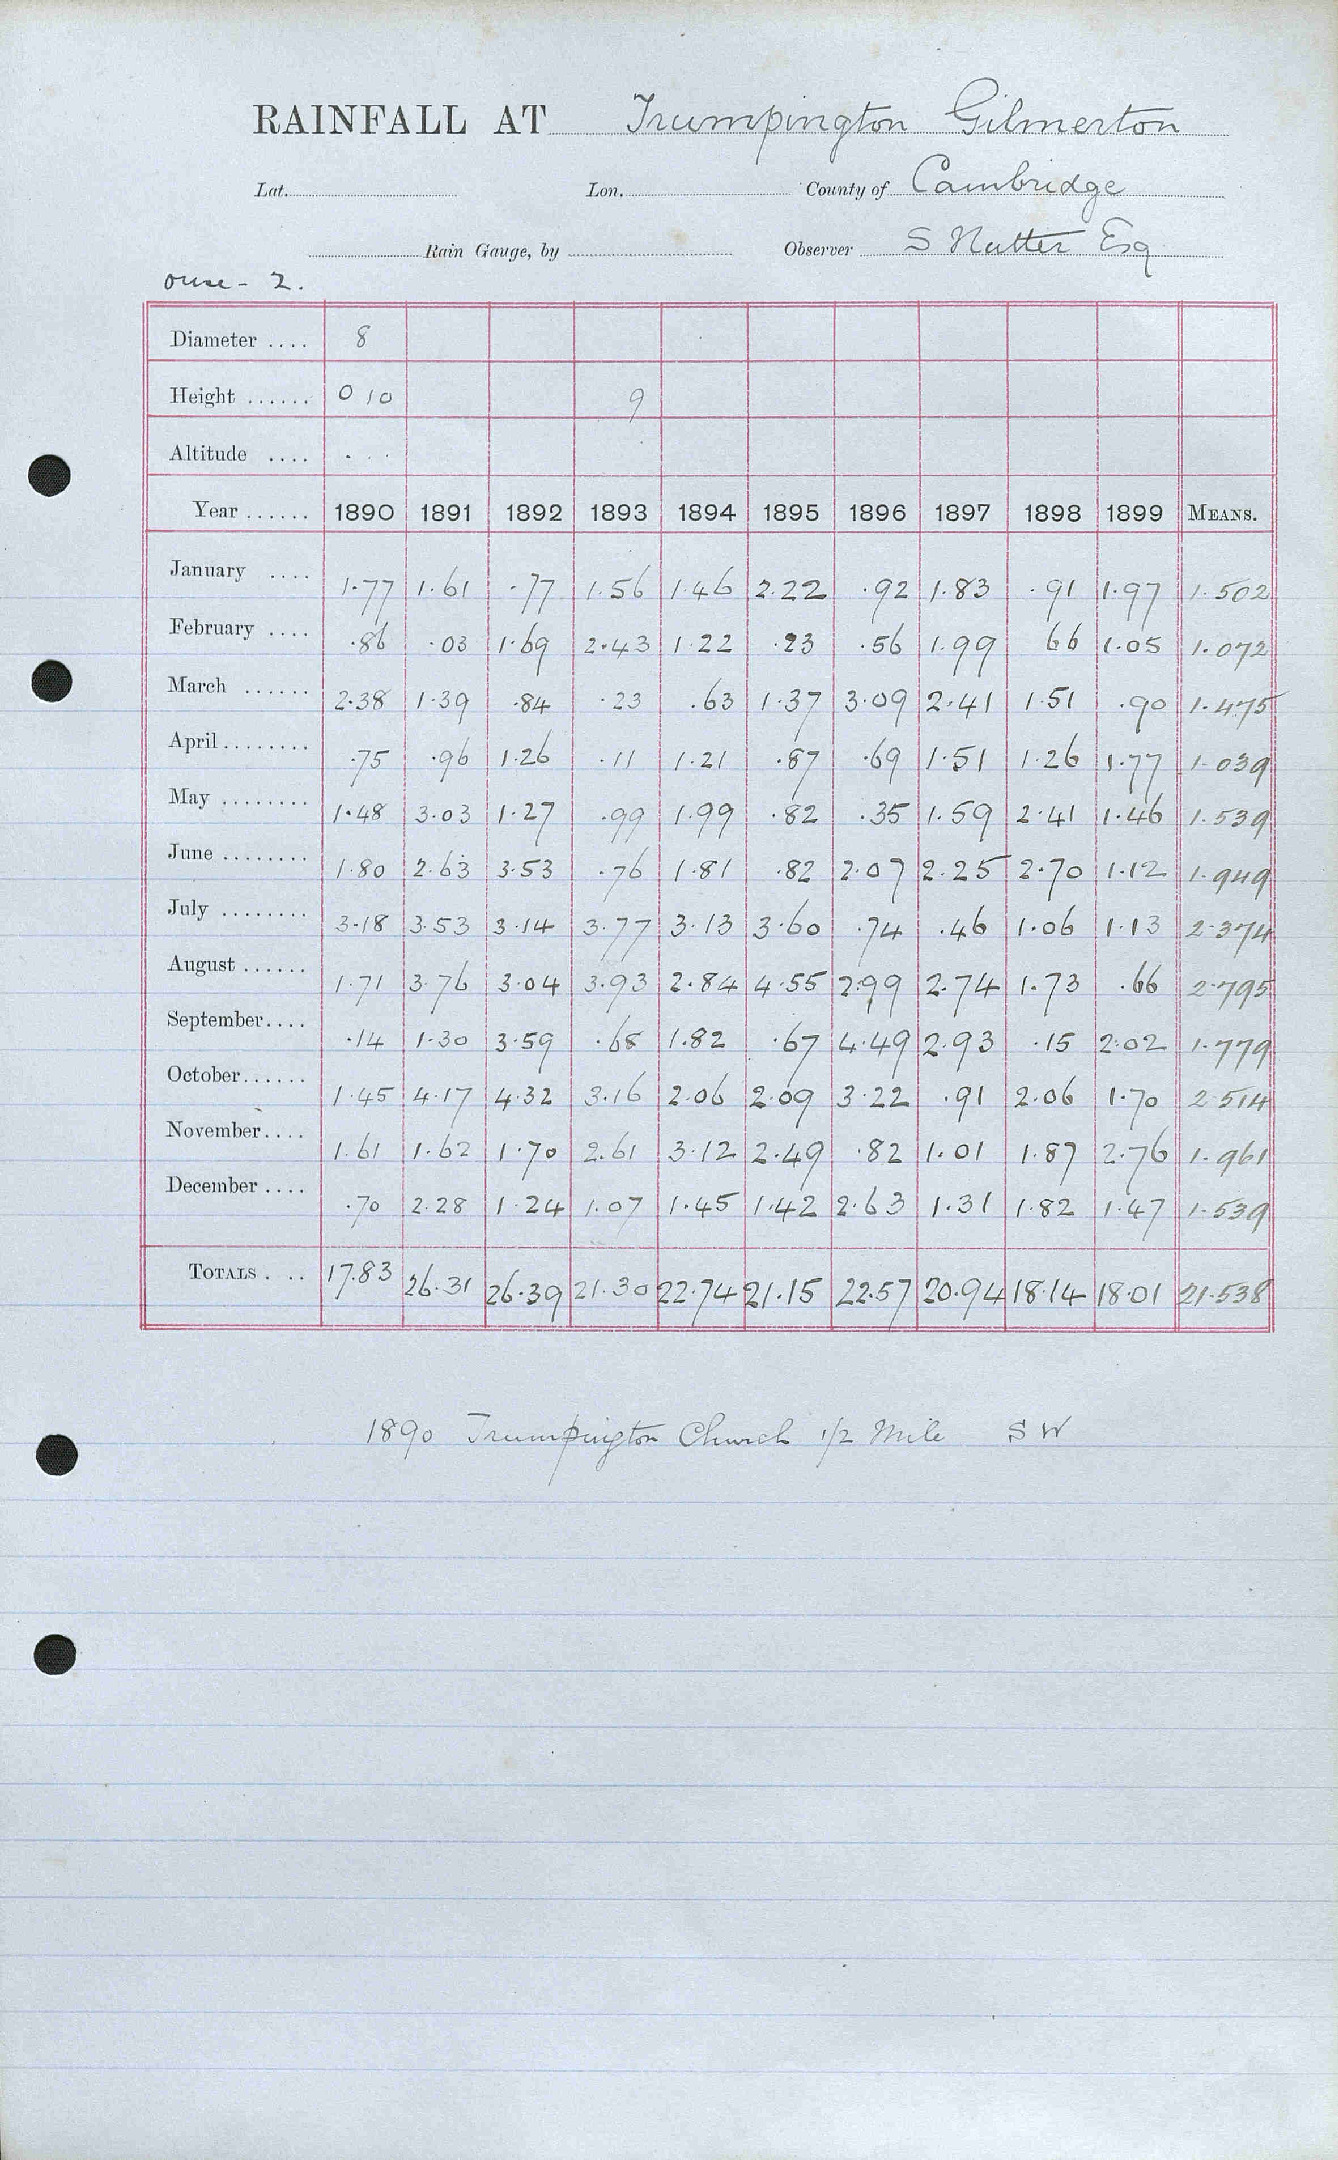 RAINFALL AT Trumpington Gilmerton
Lat. Lon. County of Cambridge
Rain Gauge, by Observer S Nutter Esq
ouse - 2.
Diameter .... 8
Height ...... 0 10 9
Altitude .... . . .
Year ...... 1890 1891 1892 1893 1894 1895 1896 1897 1898 1899 MEANS.
January .... 1.77 1.61 .77 1.56 1.46 2.22 .92 1.83 .91 1.97 1.502
February .... .86 .03 1.69 2.43 1.22 .23 .56 1.99 66 1.05 1.072
March ...... 2.38 1.39 .84 .23 .63 1.37 3.09 2.41 1.51 .90 1.475
April ........ .75 .96 1.26 .11 1.21 .87 .69 1.51 1.26 1.77 1.039
May ........ 1.48 3.03 1.27 .99 1.99 .82 .35 1.59 2.41 1.46 1.539
June ........ 1.80 2.63 3.53 .76 1.81 .82 2.07 2.25 2.70 1.12 1.949
July ........ 3.18 3.53 3.14 3.77 3.13 3.60 .74 .46 1.06 1.13 2.374
August ...... 1.71 3.76 3.04 3.93 2.84 4.55 2.99 2.74 1.73 .66 2.795
September.... .14 1.30 3.59 .68 1.82 .67 4.49 2.93 .15 2.02 1.779
October...... 1.45 4.17 4.32 3.16 2.06 2.09 3.22 .91 2.06 1.70 2.514
November.... 1.61 1.62 1.70 2.61 3.12 2.49 .82 1.01 1.87 2.76 1.961
December .... .70 2.28 1.24 1.07 1.45 1.42 2.63 1.31 1.82 1.47 1.539
TOTALS . .. 17.83 26.31 26.39 21.30 22.74 21.15 22.57 20.94 18.14 18.01 21.538
1890 Trumpington Church 1/2 Mile S W